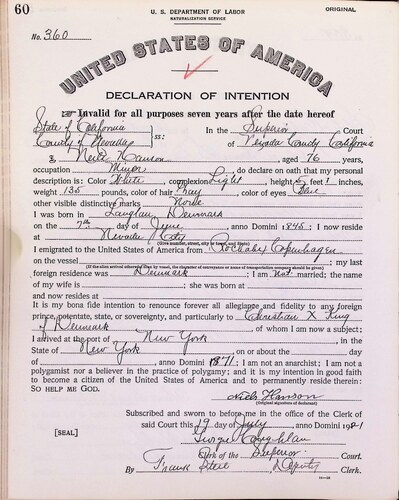 60
U. S. DEPARTMENT OF LABOR
NATURALIZATION SERVICE
ORIGINAL
No. 360
UNITED STATES OF AMERICA
DECLARATION OF INTENTION
Invalid for all purposes seven years after the date hereof
State of California
County of Nevada
ss:
In the Superior Court
of Nevada County California
I, Neils Hanson, aged 76 years,
occupation Miner, do declare on oath that my personal
description is: Color White, complexion Light, height 5 feet 1 inches,
weight 135 pounds, color of hair Gray, color of eyes Blue
other visible distinctive marks None
I was born in Denmark
on the 7th day of June, anno Domini 1845; I now reside
at Nevada City
(Give number, street, city or town, and State)
I emigrated to the United States of America from Copenhagen
on the vessel ; my last
(If the alien arrived otherwise than by vessel, the character of conveyance or name of transportation company should be given)
foreign residence was Denmark; I am not married; the name
of my wife is ; she was born at
and now resides at
It is my bona fide intention to renounce forever all allegiance and fidelity to any foreign
prince, potentate, state, or sovereignty, and particularly to Christian X King
of Denmark, of whom I am now a subject;
I arrived at the port of New York, in the
State of New York, on or about the day
of , anno Domini 1871; I am not an anarchist; I am not a
polygamist nor a believer in the practice of polygamy; and it is my intention in good faith
to become a citizen of the United States of America and to permanently reside therein:
SO HELP ME GOD.
Niels Hanson
(Original signature of declarant)
Subscribed and sworn to before me in the office of the Clerk of
said Court this 19 day of July, anno Domini 1921
[SEAL]
Clerk of the Superior Court.
By Frank Steel, Deputy Clerk.